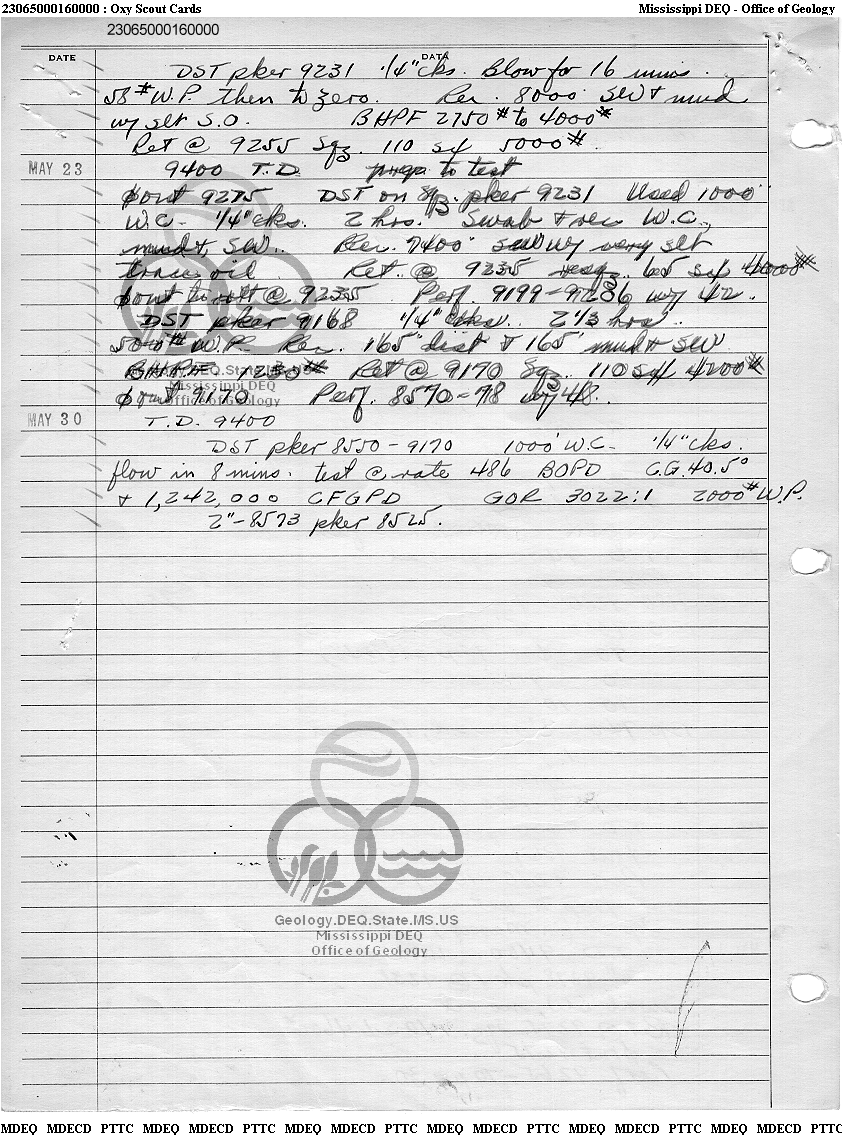 23065000160000 : Oxy Scout Cards Mississippi DEQ - Office of Geology
23065000160000
DATE DATA
DST pker 9231 1/4" cks. Blow for 16 mins.
58# W.P. then to zero. Rec. 8000' SW & mud
w/ slt S.O. BHPF 2750# to 4000#
Ret @ 9255 Sqz. 110 sx 5000#.
MAY 23 9400 T.D. prep to test
out 9275 DST on Sqz. pker 9231 Used 1000'
W.C. 1/4" cks. 2 hrs. Swab & rec W.C.,
mud & SW. Rec. 7400' SW w/ very slt
trace oil Ret. @ 9235 resqz. 65 sx
out to ret @ 9235 Perf. 9199-9206 w/ 42.
DST pker 9168 1/4" cks. 2 1/3 hrs.
500# W.P. Rec. 165' dist & 165' mud & SW
BHPF 1230# Ret @ 9170 Sqz 110 sx 4200#
out 9170 Perf. 8570-78 w/ 48.
MAY 30 T.D. 9400
DST pker 8550-9170 1000' W.C. 1/4" cks.
flow in 8 mins. test @ rate 486 BOPD C.G. 40.5°
& 1,242,000 CFGPD GOR 3022:1 2000# W.P.
2"-8573 pker 8525.
Geology.DEQ.State.MS.US
Mississippi DEQ
Office of Geology
Geology.DEQ.State.MS.US
Mississippi DEQ
Office of Geology
MDEQ MDECD PTTC MDEQ MDECD PTTC MDEQ MDECD PTTC MDEQ MDECD PTTC MDEQ MDECD PTTC MDEQ MDECD PTTC